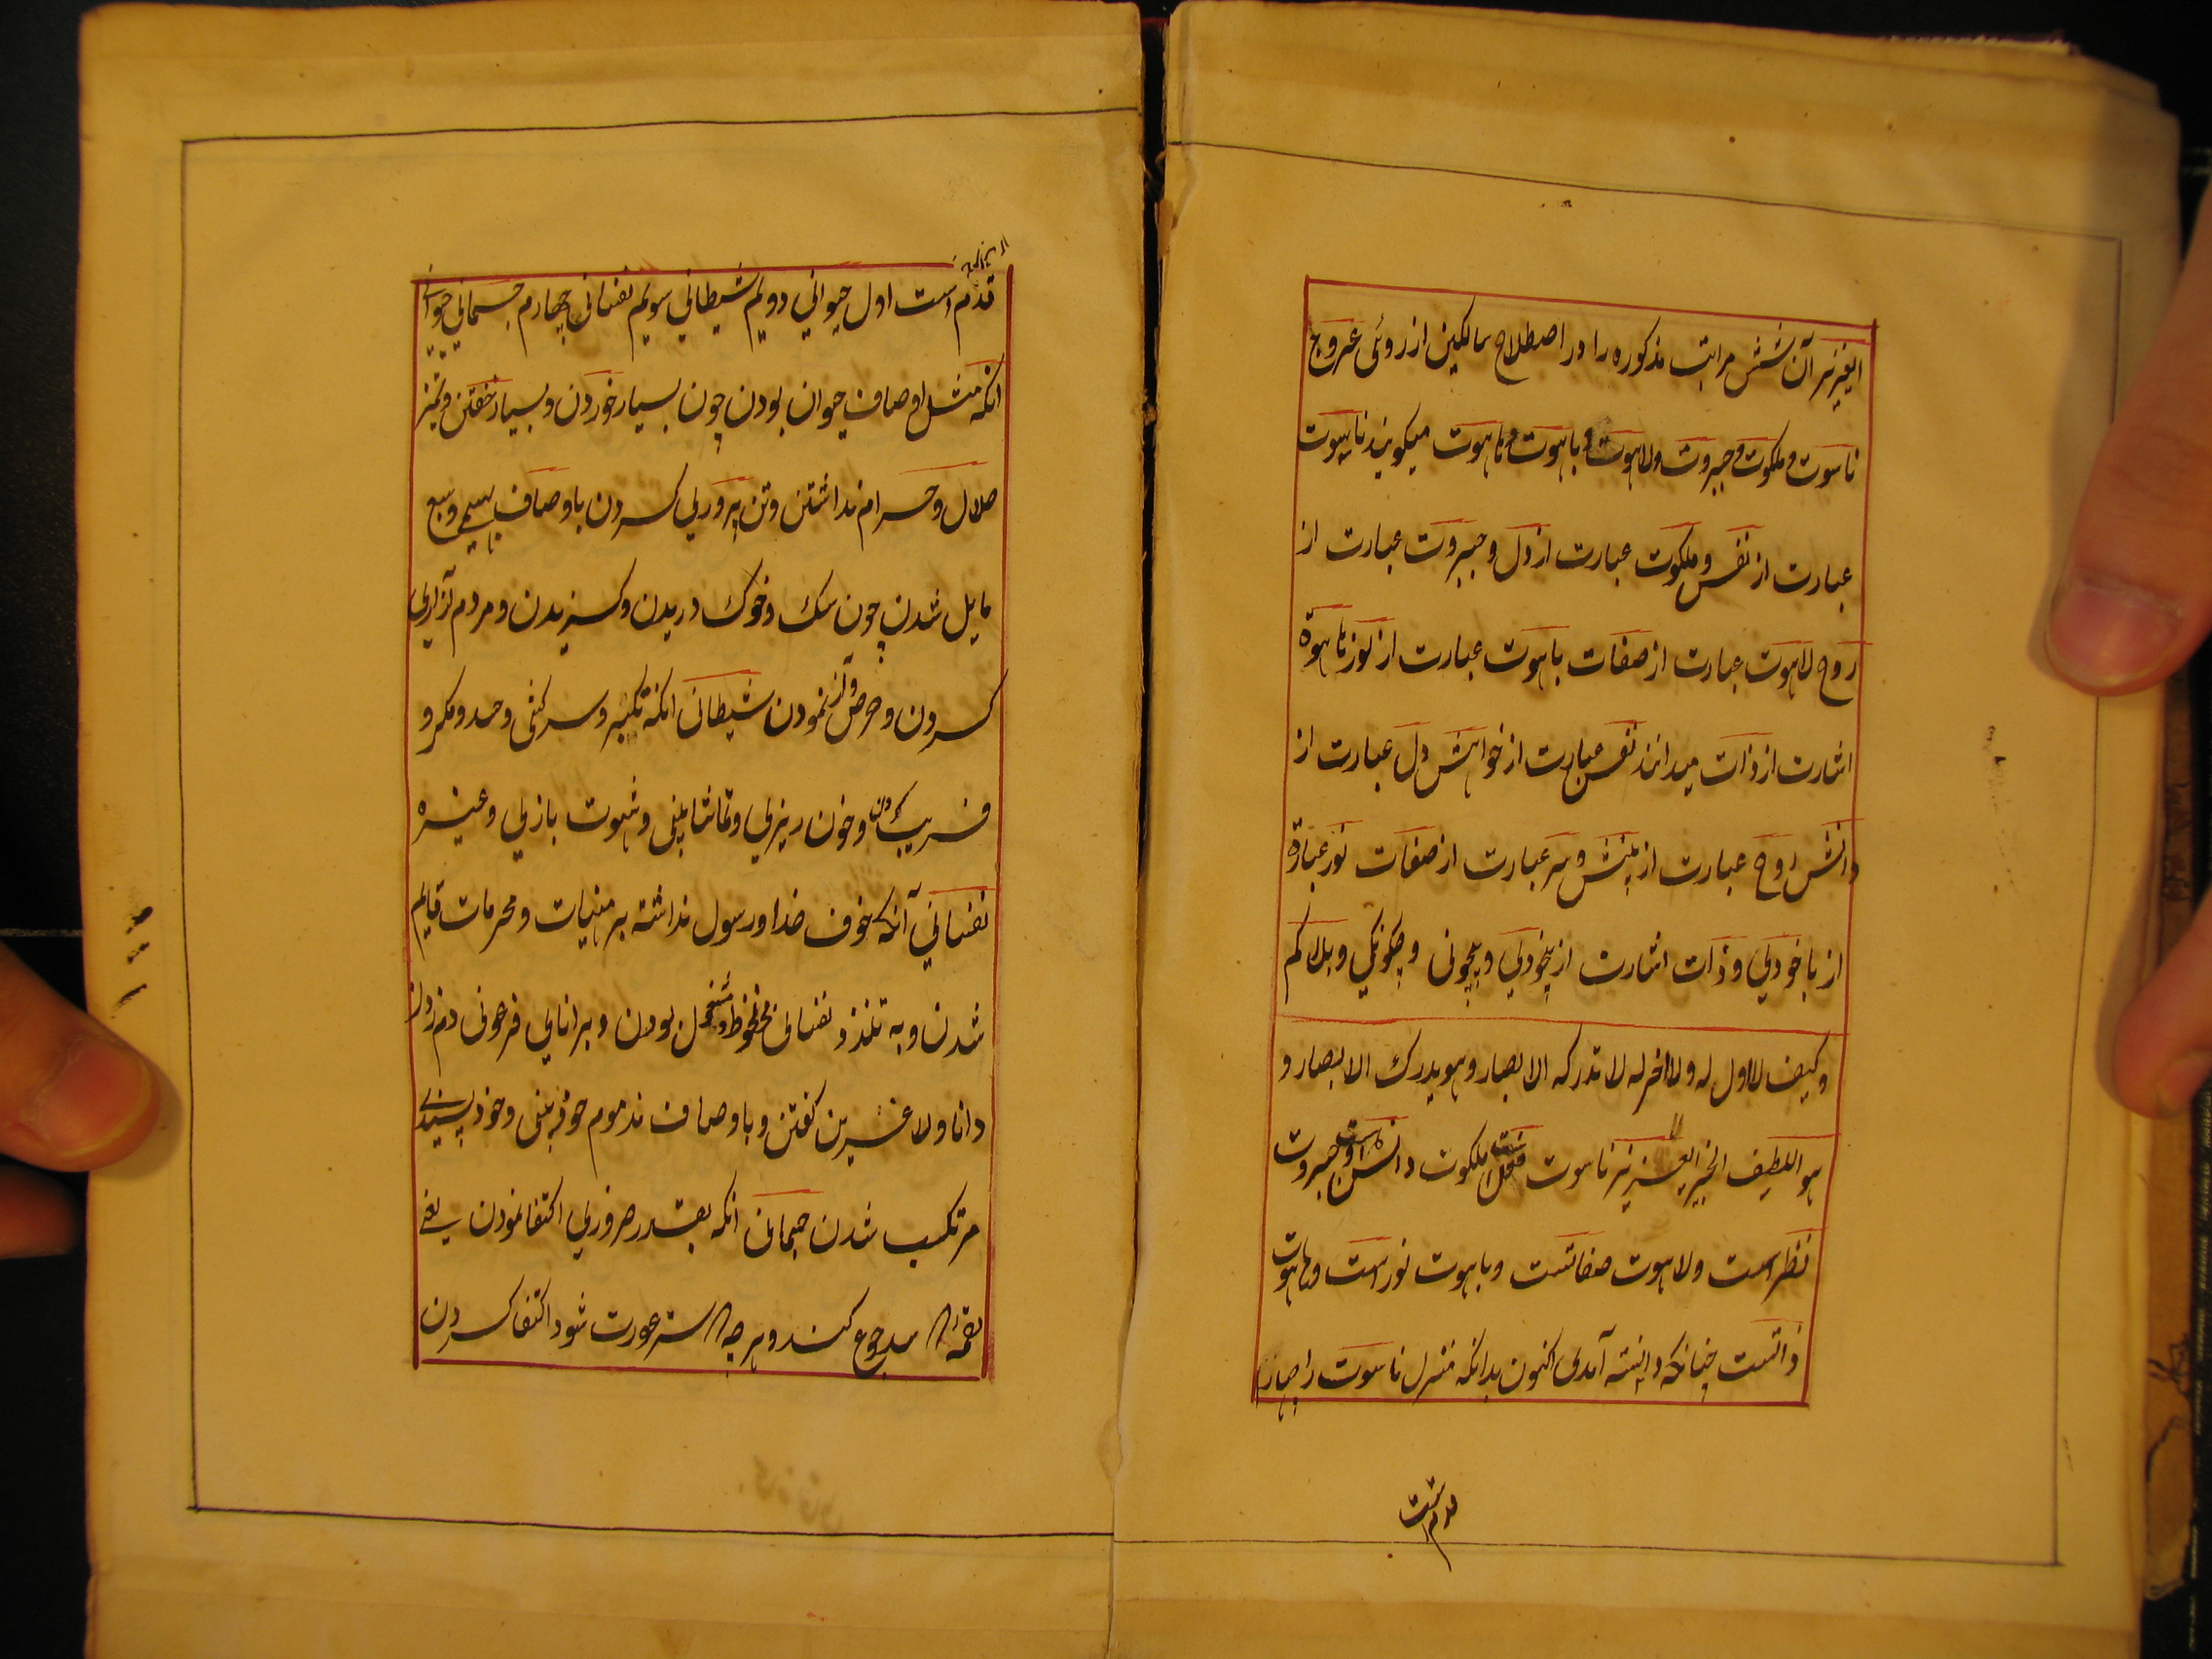 ایعزیز آن شش مراتب مذکوره را در اصطلاح سالکین از روئی عروج
ناسوت و ملکوت و جبروت ولاهوت و باهوت و هاهوت میکویند ناسوت
عبارت از نفس و ملکوت عبارت از دل و جبروت عبارت از
روح لاهوت عبارت از صفات باهوت عبارت از نور هاهوة
اشارت از ذات میدانند نفس عبارت از خواهش دل عبارت از
دانش روح عبارت از بینش و سر عبارت از صفات نور عبارة
از باخودی و ذات اشارت از بیخودی و بیچونی و چکونکی و بلا کم
و کیف لا اول له ولا اخر له لا تدرکه الابصار و هو یدرک الابصار و
هو اللطیف الخبیر ایعزیز ناسوت ملکوت دانش جبروت
نظر است ولاهوت صفاتست و باهوت نور است و هاهوت
ذاتست چنانکه دانسته آمدی اکنون بدانکه منزل ناسوت را چهار
قدم است
قدم است اول حیوانی دویم شیطانی سویم نفسانی چهارم جسمانی حیوانی
انکه مثل اوصاف حیوان بودن چون بسیار خوردن و بسیار خفتن و تمیز
حلال و حرام نداشتن و تن پروری کردن باوصاف بهیمی و سبع
مایل شدن چون سک و خوک دریدن و کزیدن و مردم آزاری
کردن و حرص و آز نمودن شیطانی انکه تکبر و سرکشی و حسد و مکر و
فریب کردن و خون ریزی و تماشا بینی و شهوت بازی و غیره
نفسانی آنکه خوف خدا و رسول نداشته بر منهیات و محرمات قایم
شدن و به تلذذ نفسانی محظوظ بودن و برانای فرعونی دم زدن
دانا ولا غیرین کفتن و باوصاف مذموم خود بینی و خود پسندی
مرتکب شدن جسمانی انکه بقدر ضروری اکتفا نمودن یعنی
لقمه که سد جوع کند و هر چه که ستر عورت شود اکتفا کردن